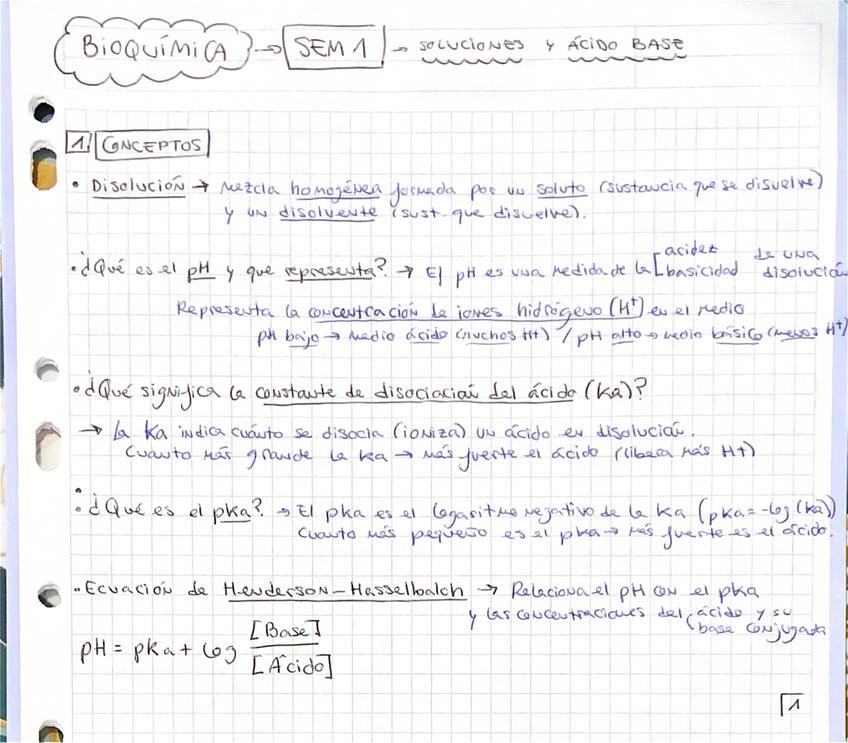 BIOQUÍMICA → SEM 1 → SOLUCIONES Y ÁCIDO BASE
1 CONCEPTOS
• Disolución → Mezcla homogénea formada por un soluto (sustancia que se disuelve)
y un disolvente (sust. que disuelve).
• ¿Qué es el pH y que representa? → El pH es una medida de la [acidez basicidad de una disolución
Representa la concentración de iones hidrógeno (H+) en el medio
pH bajo → Medio ácido (muchos H+) / pH alto → medio básico (menos H+)
• ¿Qué significa la constante de disociación del ácido (ka)?
→ La Ka indica cuánto se disocia (ioniza) un ácido en disolución.
Cuanto más grande la ka → más fuerte el ácido (libera más H+)
• ¿Qué es el pka? → El pka es el logaritmo negativo de la Ka (pKa = -log (ka))
Cuanto más pequeño es el pka → más fuerte es el ácido.
• Ecuación de Henderson-Hasselbalch → Relaciona el pH con el pka
y las concentraciones del (ácido y su
base conjugada
pH = pKa + log [Base] / [Ácido]
1